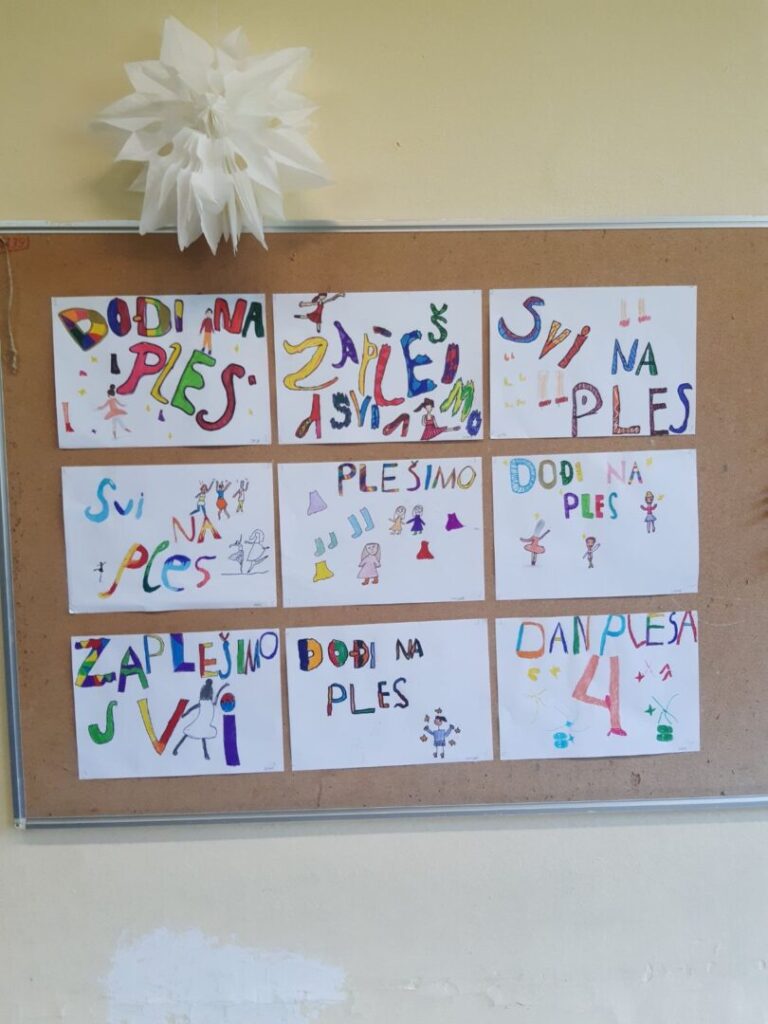 DOĐI NA
PLES
ZAPLEŠIMO
SVI
SVI
NA
PLES
Svi
NA
Ples
PLEŠIMO
DOĐI NA
PLES
ZAPLEŠIMO
SVi
DOĐI NA
PLES
DAN PLESA
4